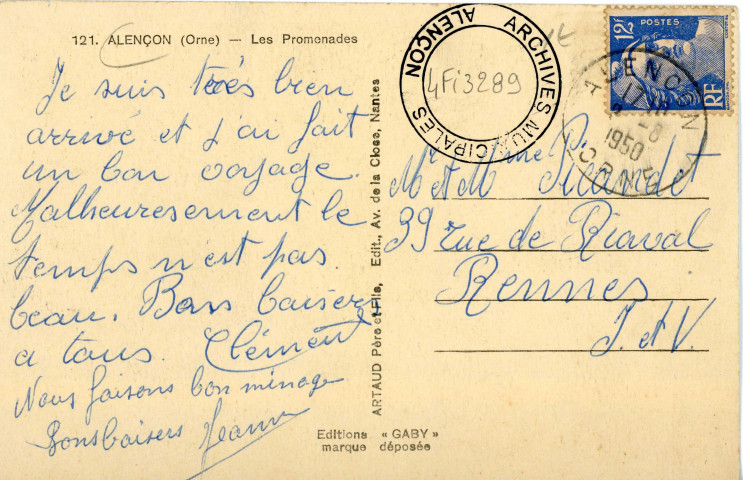 121. ALENÇON (Orne) — Les Promenades
Je suis très bien
arrivé et j'ai fait
un bon voyage.
Malheuresement le
temps n'est pas
beau. Bons baisers
a tous. Clément
Nous faisons bon ménage
Bons baisers Jeanne
ARTAUD Père et Fils, Edit., Av. de la Close, Nantes
Editions « GABY »
marque déposée
ARCHIVES MUNICIPALES ALENÇON
4Fi3289
12F POSTES
RF
ALENÇON
17
-8
1950
ORNE
Mr et Mme
39 rue de Riaval
Rennes
I. et V.